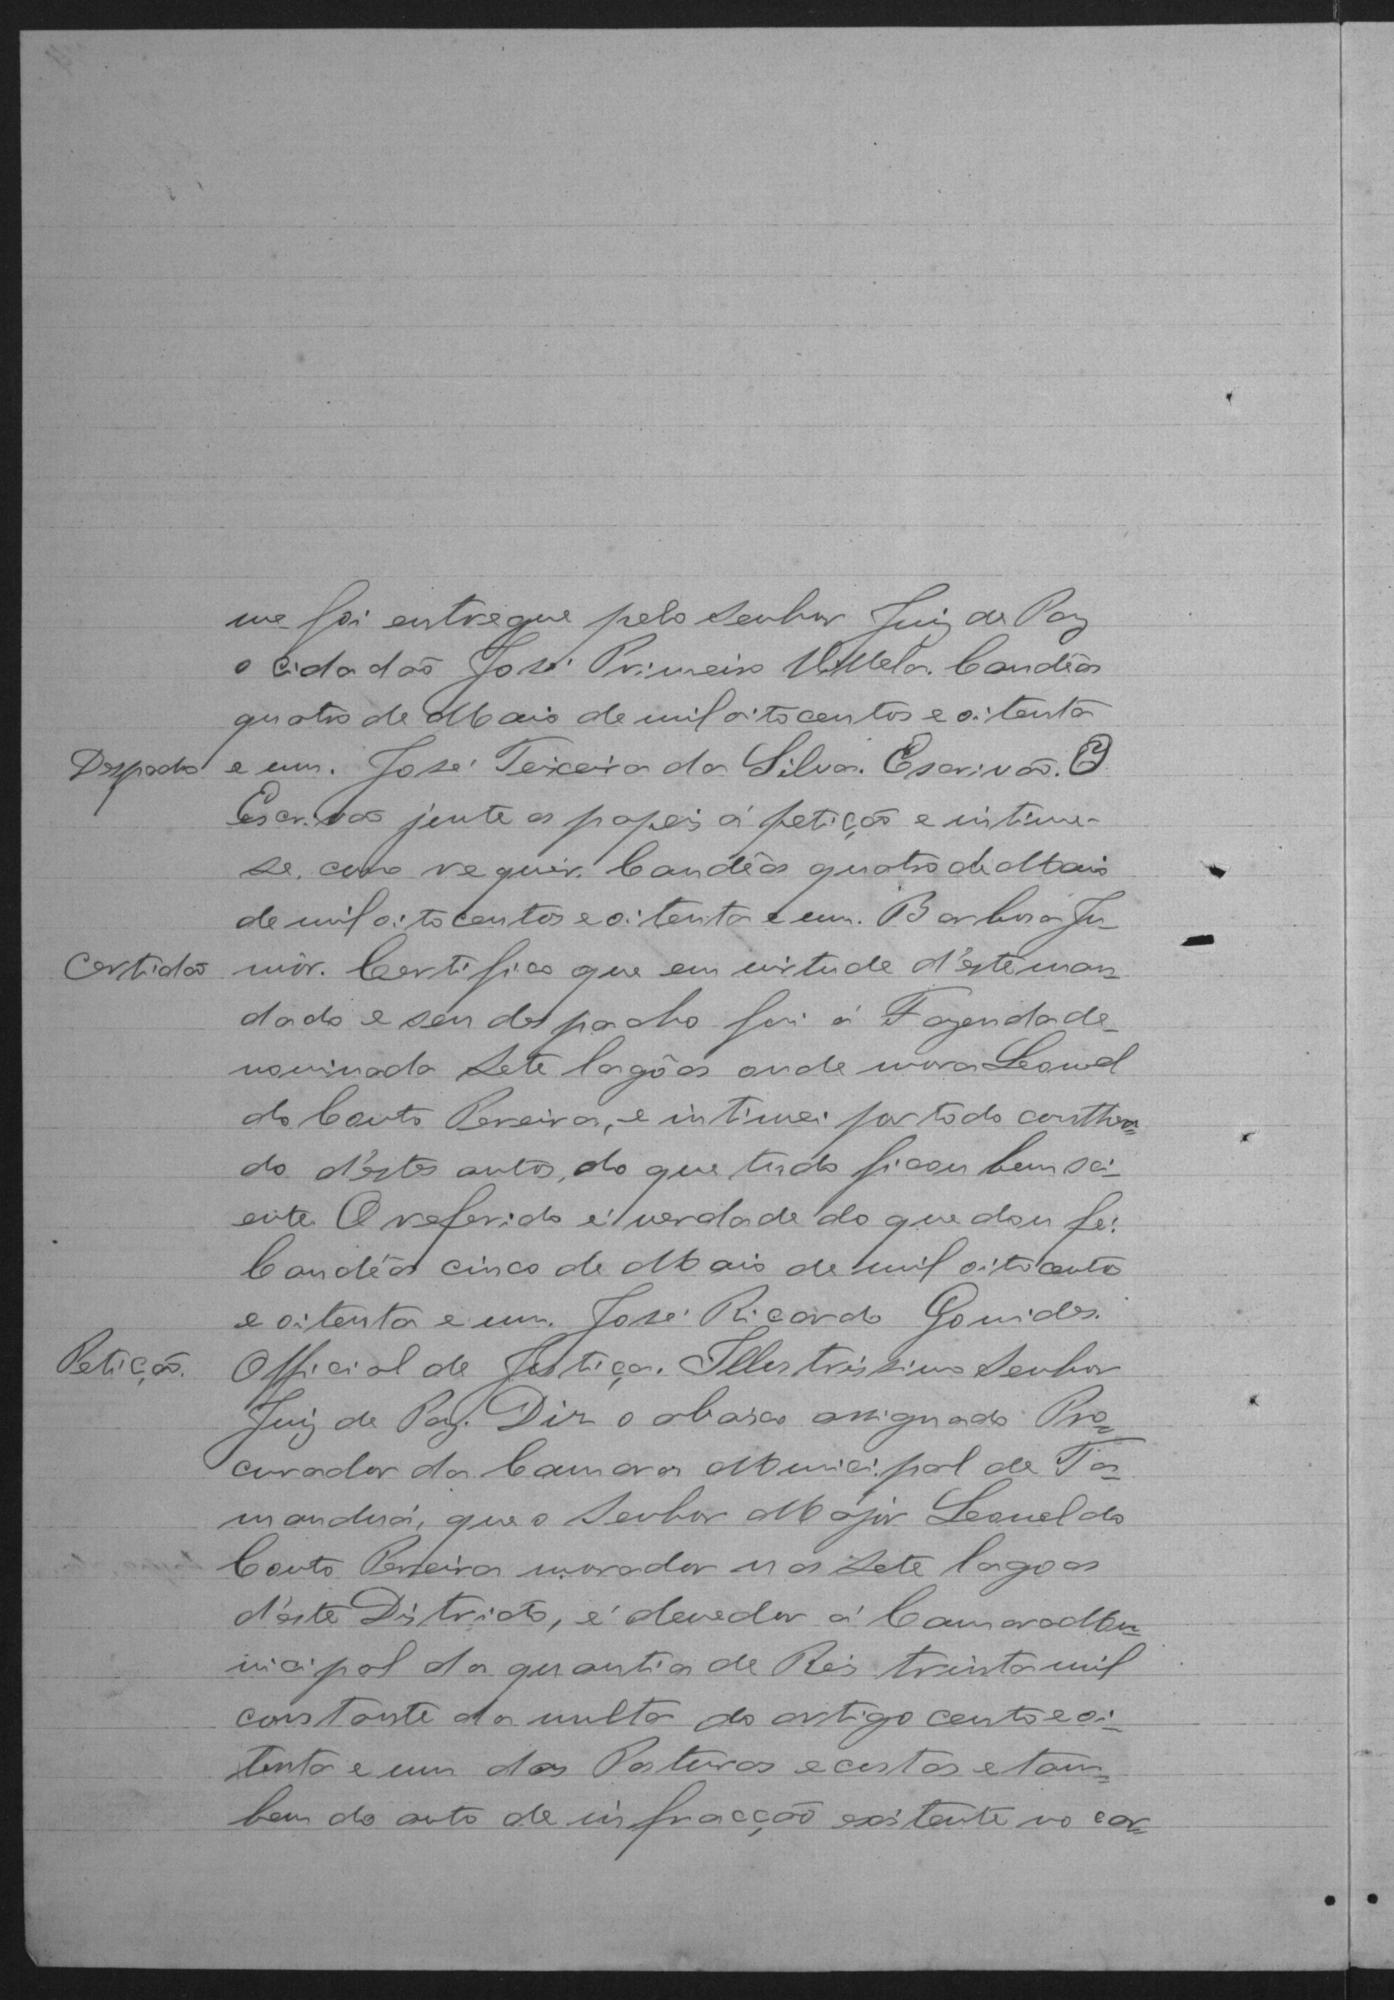 me foi entregue pelo Senhor Juiz de Paz
o cidadão José Primeiro Villela. Candêas
quatro de Maio de mil oitocentos e oitenta
Despacho e um. José Teixeira da Silva. Escrivão. O
Escrivão junte os papeis á petição e intime-
se, como requér. Candêas quatro de Maio
de mil oitocentos e oitenta e um. Barbosa Ju-
Certidão nior. Certifico que em virtude d'este man-
dado e seu despacho fui á Fazenda de-
nominada Sete lagôas onde mora Leonel
do Couto Pereira, e intimei por todo contheu-
do d'estes autos, do que tudo ficou bem sci-
ente. O referido é verdade do que dou fé.
Candêas cinco de Maio de mil oitocentos
e oitenta e um. José Ricardo
Petição. Official de Justiça. Illustrissimo Senhor
Juiz de Paz. Diz o abaixo assignado Pro-
curador da Camara Municipal de Ta-
manduá, que o Senhor Májor Leonel do
Couto Pereira morador nas Sete lagoas
d'este Districto, é devedor á Camara Mu-
nicipal da quantia de Reis trinta mil
constante da multa do artigo cento e oi-
tenta e um das Posturas e custas e tam-
bem do auto de infracção existente no car-